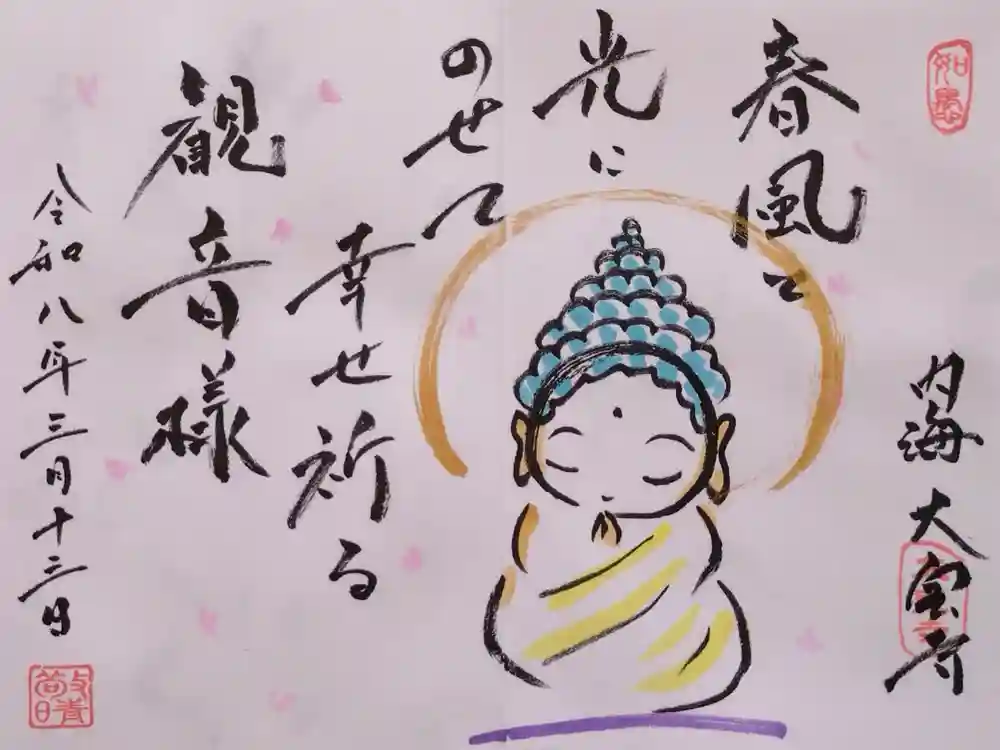 内海 大宝寺
春風と
光に
のせて
幸せ祈る
観音様
令和八年三月十三日